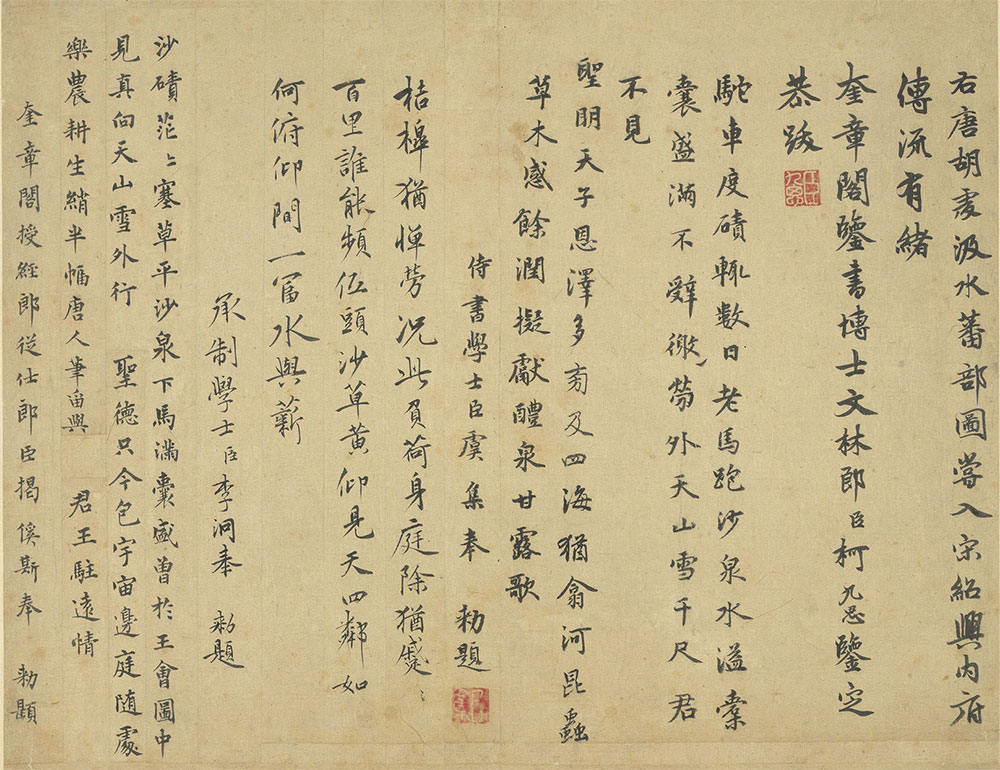 右唐胡虔汲水蕃部圖嘗入宋紹興内府
傳流有緒
奎章閣鑒書博士文林郎臣柯九思鑒定
恭跋
駝車度磧輒數日老馬跑沙泉水溢橐
囊盛滿不辭微勞外天山雪千尺君
不見
聖明天子恩澤多旁及四海猶翕河昆蟲
草木感餘潤擬獻醴泉甘露歌
侍書學士臣虞集奉 勅題
桔槔猶憚勞況此負荷身庭除猶蹙〻
百里誰能頻低頭沙草黃仰見天四鄰如
何俯仰間一富水與薪
承制學士臣李泂奉 勅題
沙磧茫〻塞草平沙泉下馬滿囊盛曽於王會圖中
見真向天山雪外行 聖德只今包宇宙邊庭隨處
樂農耕生綃半幅唐人筆留與 君王駐遠情
奎章閣授經郎從仕郎臣揭傒斯奉 勅題